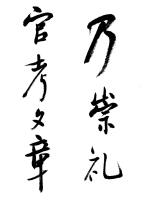 乃崇礼
官考文章